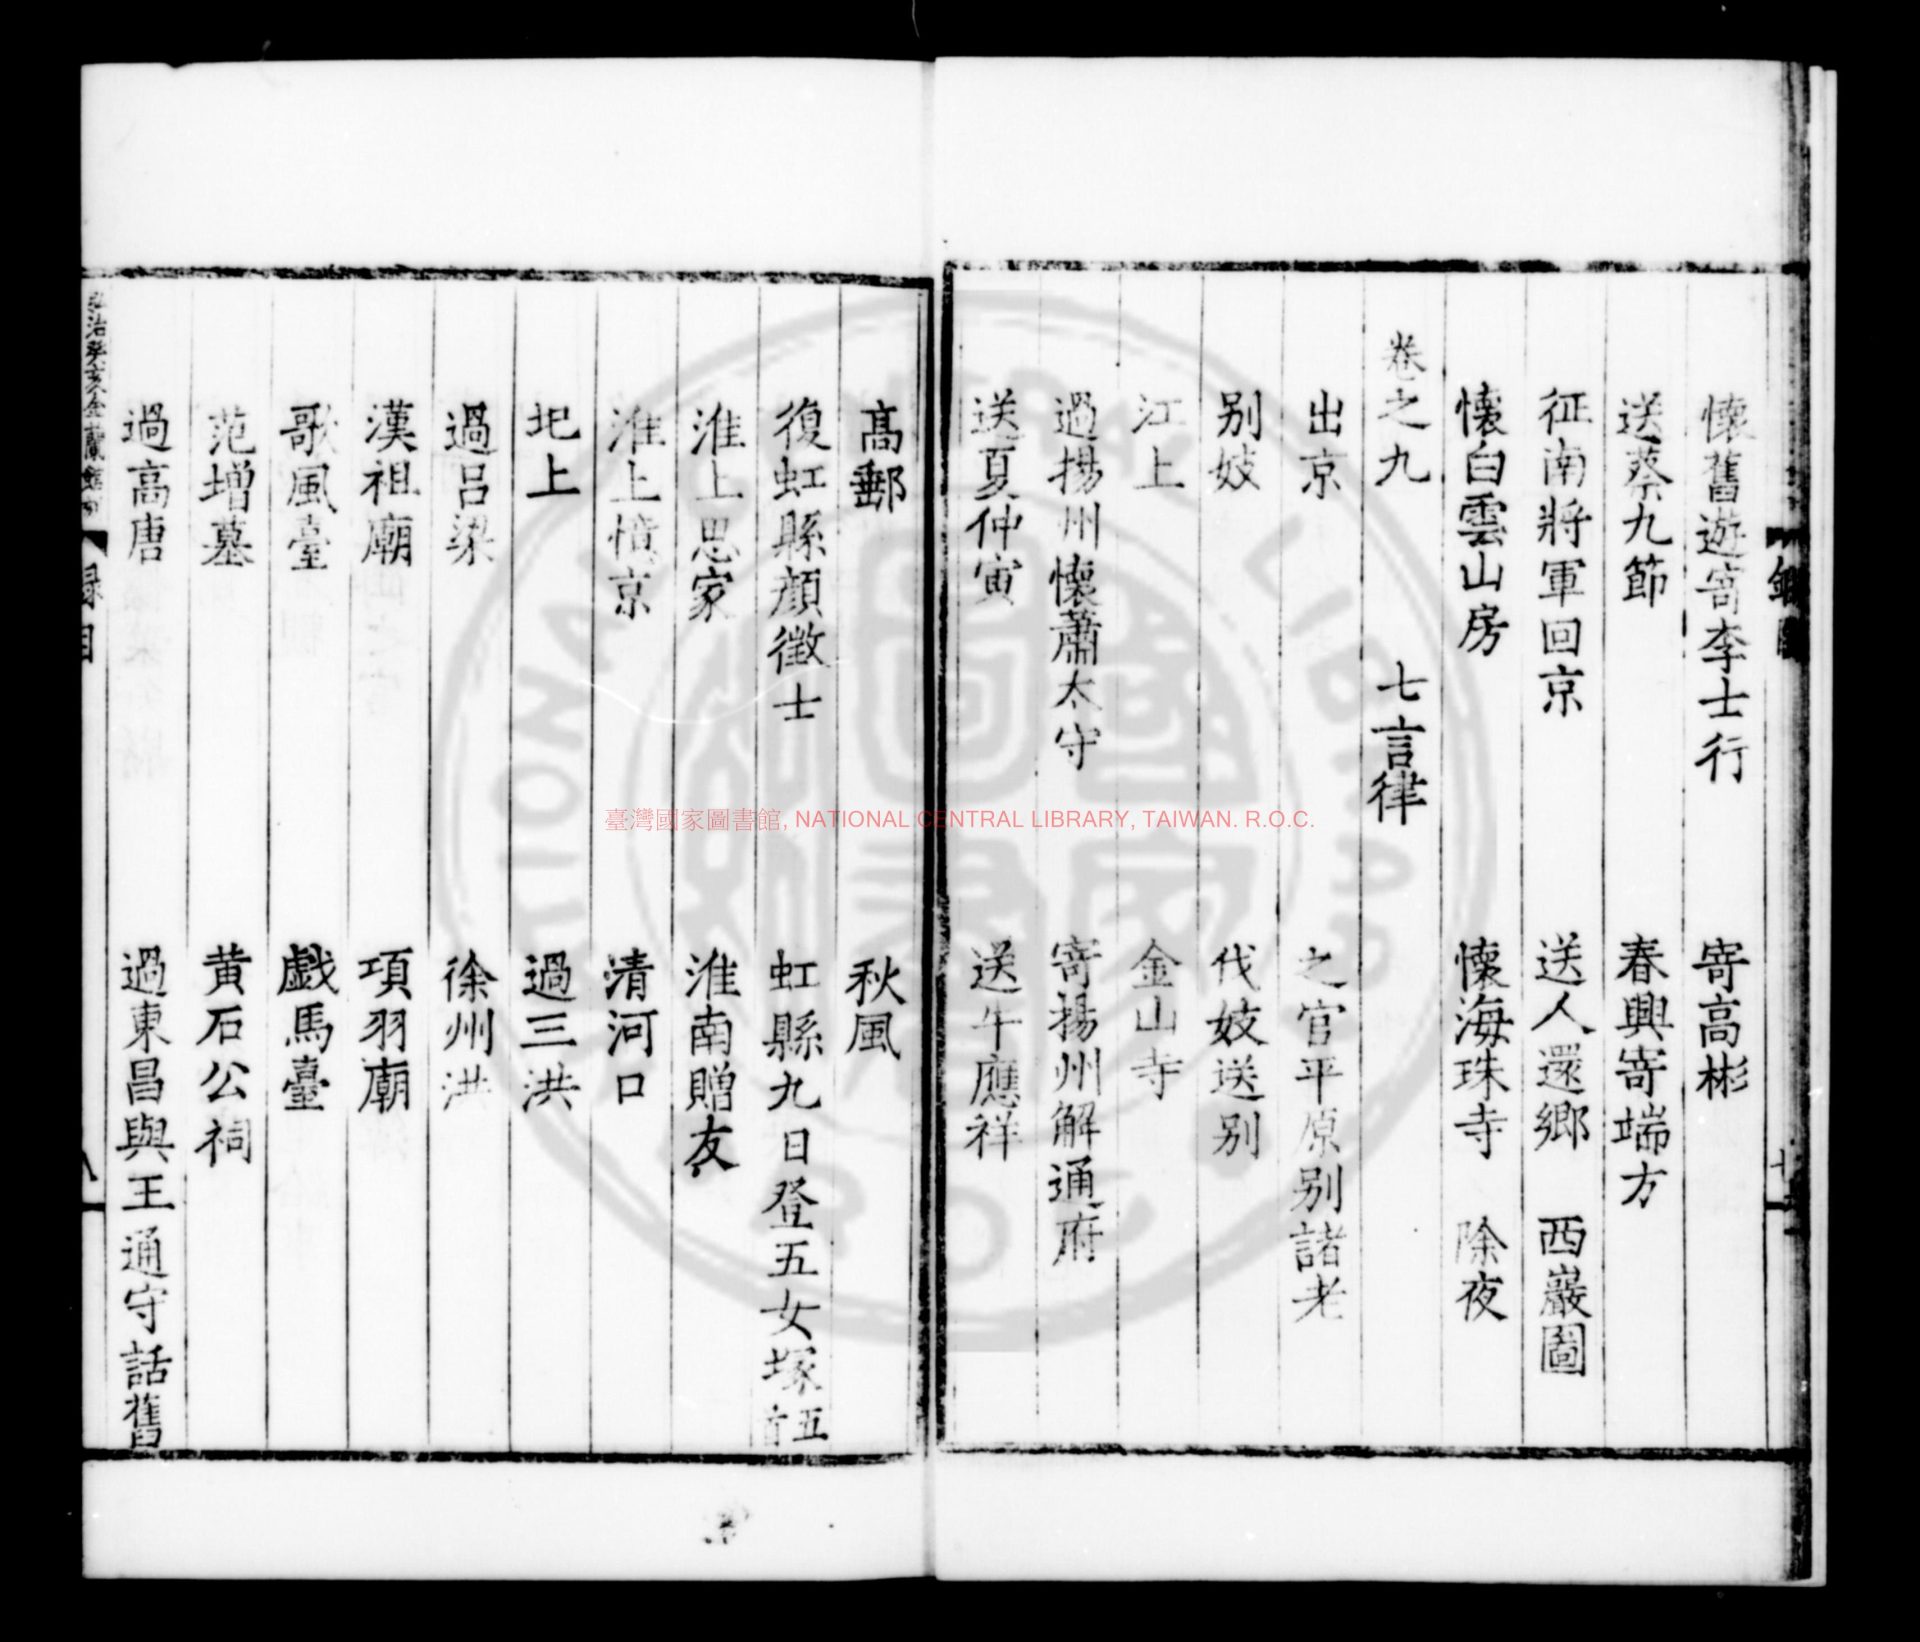 懷舊遊寄李士行　寄高彬
送蔡九節　春興寄端方
征南將軍回京　送人還鄉　西巖圖
懷白雲山房　懷海珠寺　除夜
卷之九　七言律
出京　之官平原別諸老
別妓　代妓送別
江上　金山寺
過揚州懷蕭太守　寄揚州解通府
送夏仲寅　送午應祥
高郵　秋風
復虹縣顏徵士　虹縣九日登五女塚五首
淮上思家　淮南贈友
淮上憤京　清河口
圯上　過三洪
過呂梁　徐州洪
漢祖廟　項羽廟
歌風臺　戲馬臺
范增墓　黃石公祠
過高唐　過東昌與王通守話舊
弘治癸亥金蘭館　錄目
臺灣國家圖書館, NATIONAL CENTRAL LIBRARY, TAIWAN. R.O.C.